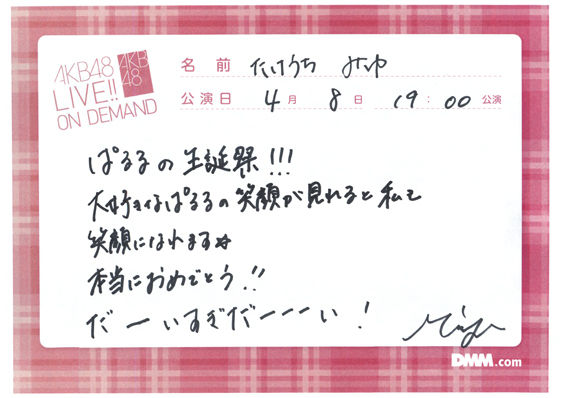 AKB48
LIVE!!
ON DEMAND
AKB
48
名前 たけうち みゆ
公演日 4月 8日 19:00 公演
ぱるるの生誕祭!!!
大好きなぱるるの笑顔が見れると私も
笑顔になれます☆
本当におめでとう!!
だーいすぎだーーーい!
Miyu
DMM.com